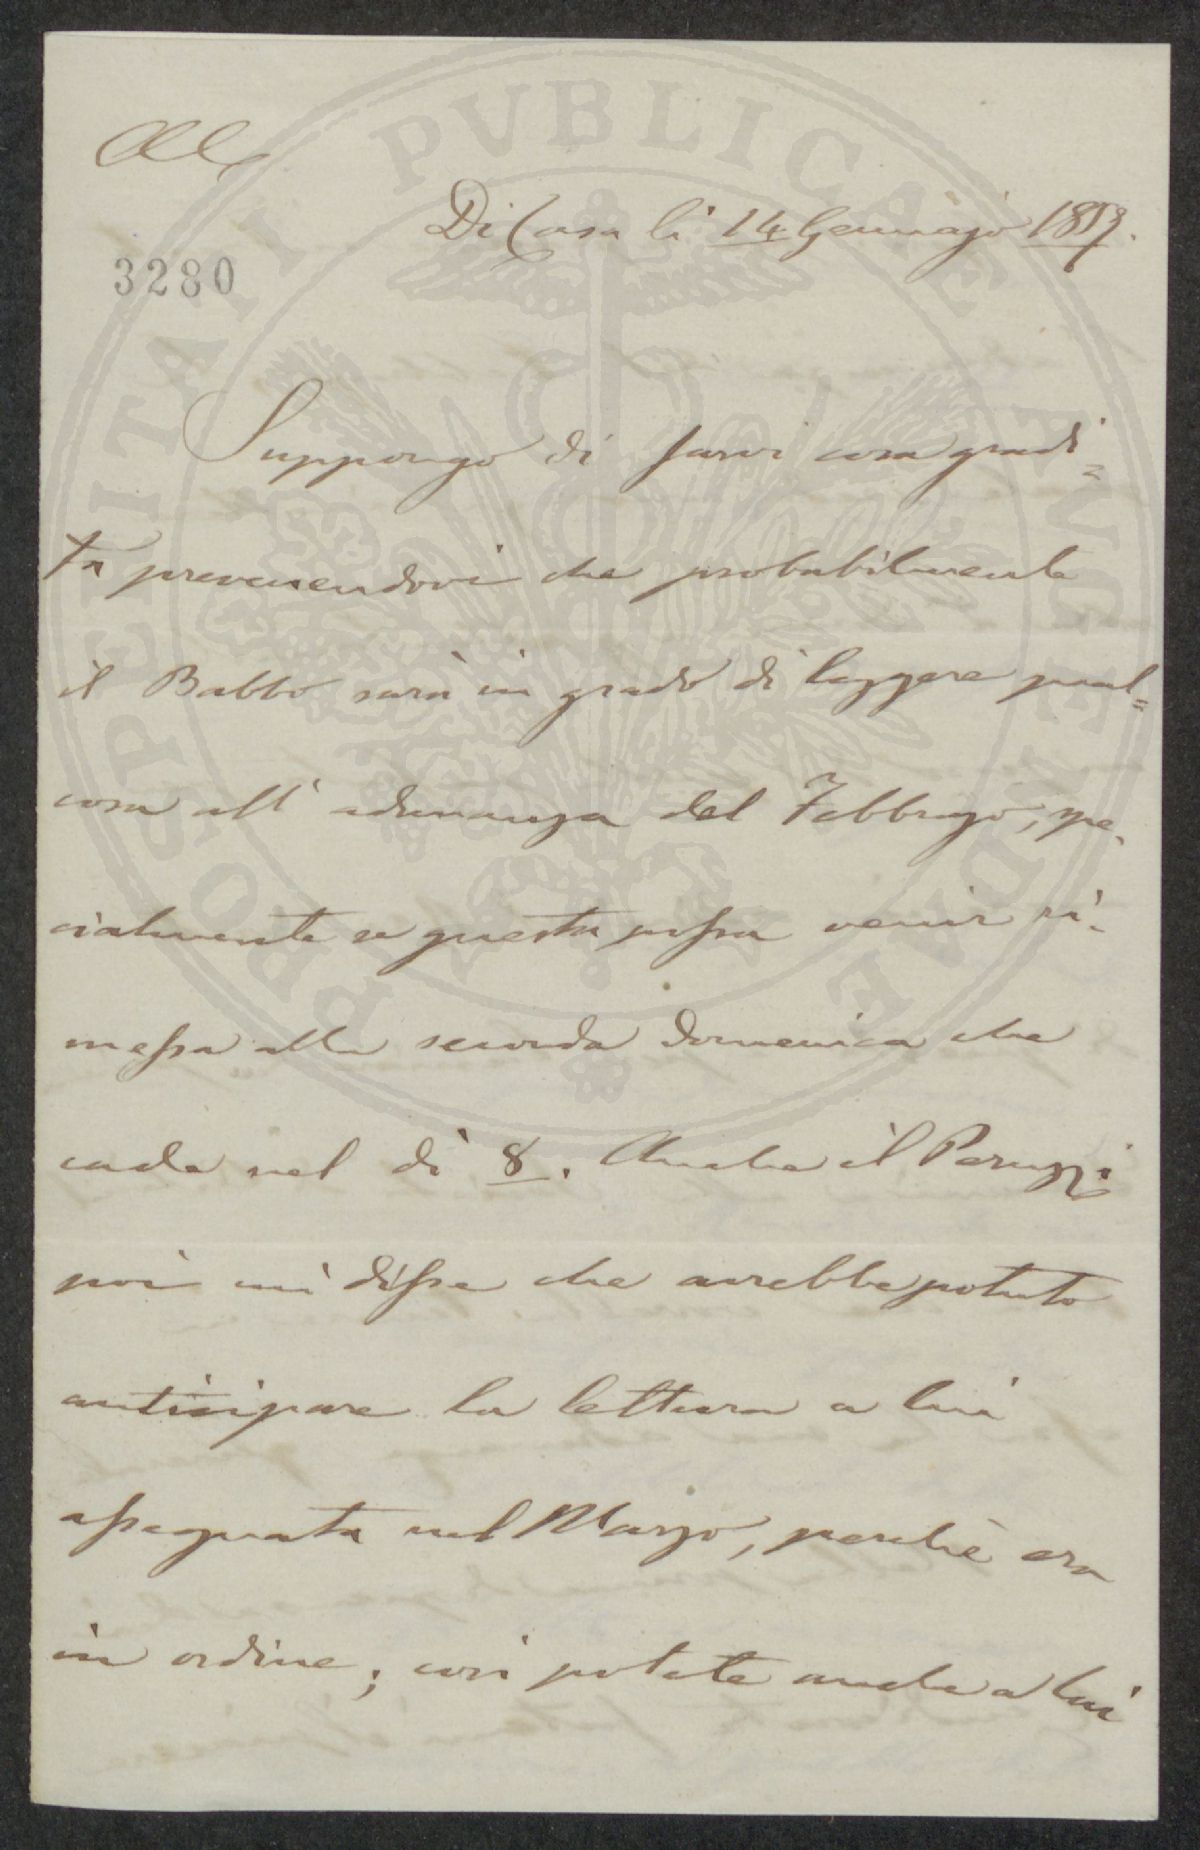 Di Casa lì 14 Gennajo 1857.
3280
Suppongo di farvi cosa gradi=
ta prevenendovi che probabilmente
il Babbo sarà in grado di leggere qual=
cosa all' adunanza del Febbrajo, spe-
cialmente se questa possa venir ri-
messa alla seconda domenica che
cade nel dì 8. Anche il Peruzzi
poi mi disse che avrebbe potuto
anticipare la lettura a lui
assegnata nel Marzo, perchè era
in ordine; così potete anche a lui
PROSPERITATI PVBLICAE AVGENDAE